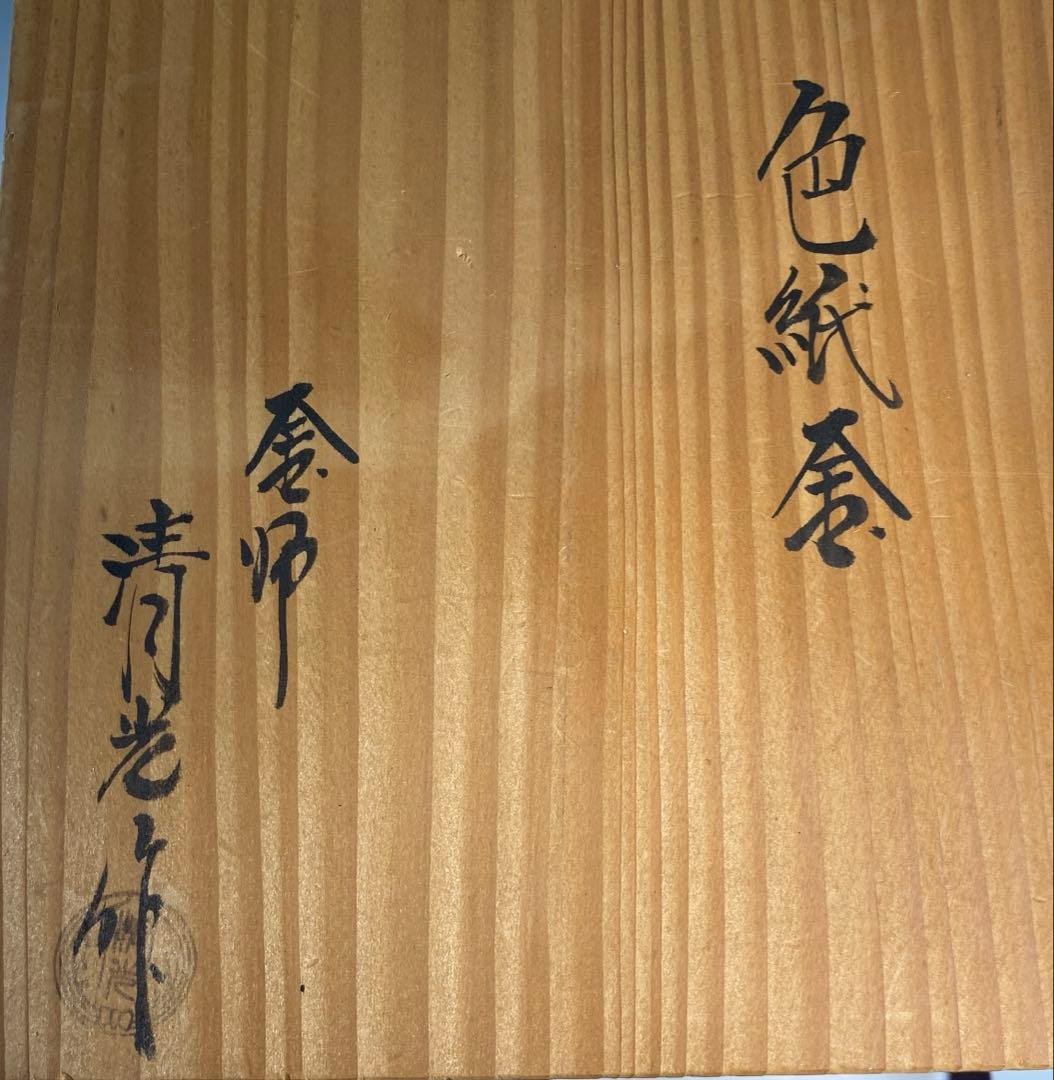 色紙釜
釜師
清光作